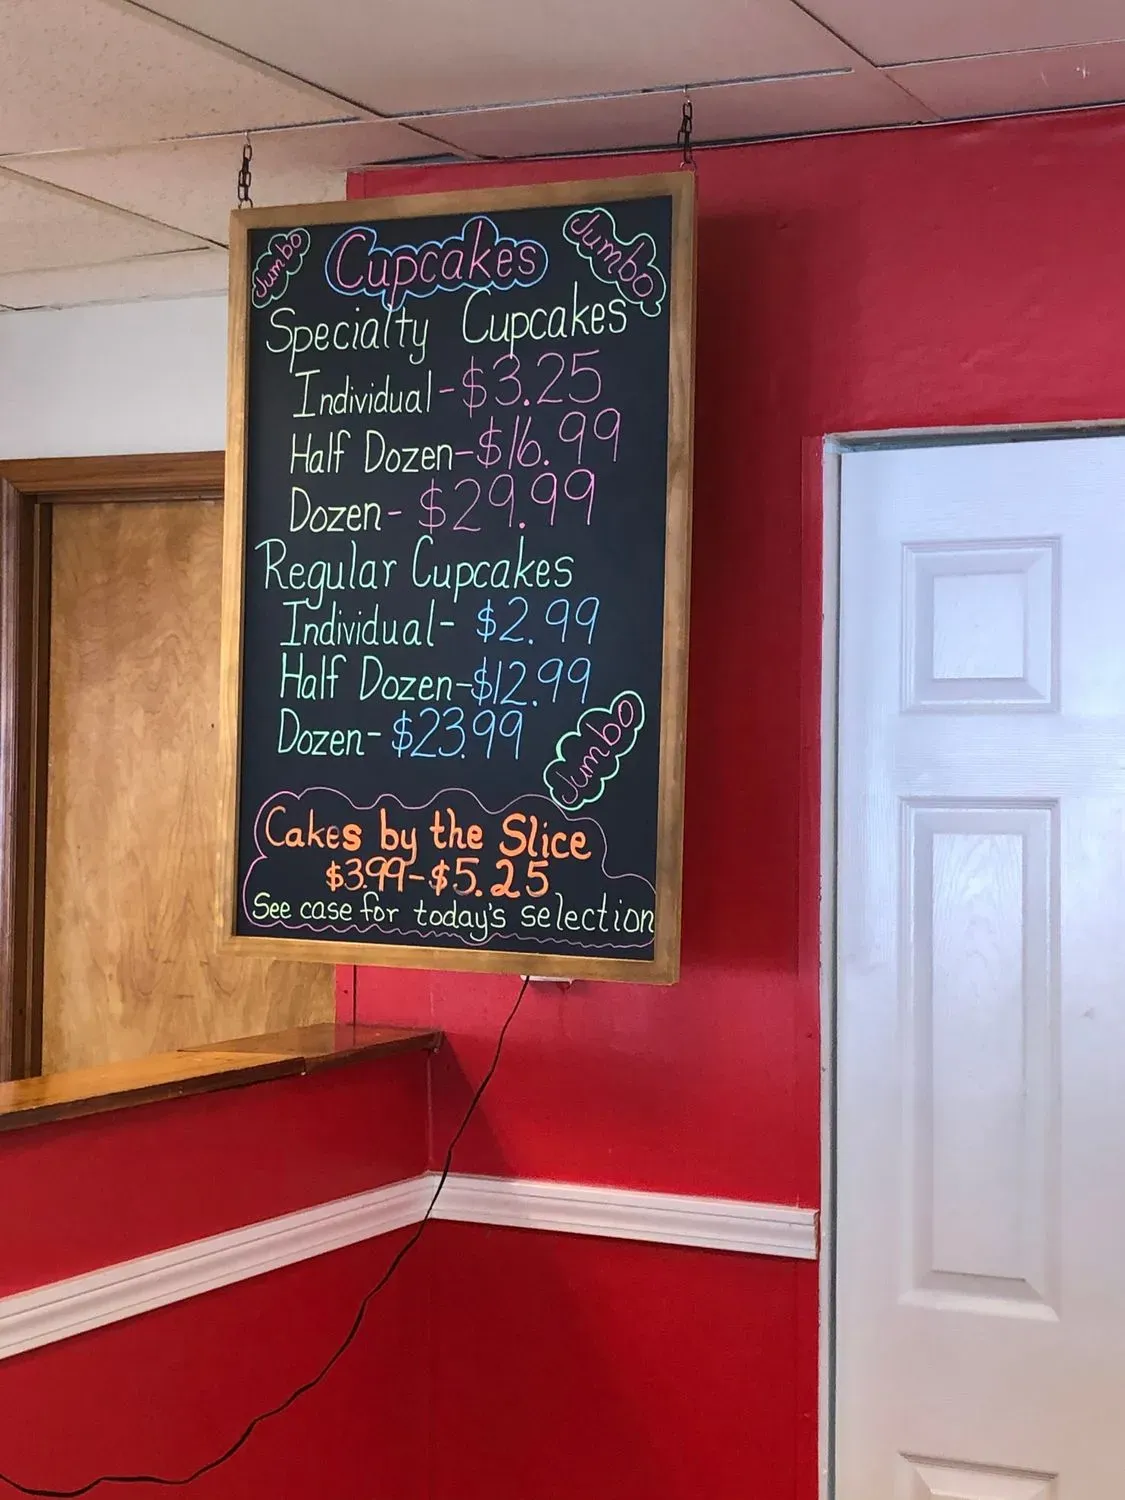 Jumbo
Cupcakes
Jumbo
Specialty Cupcakes
Individual-$3.25
Half Dozen-$16.99
Dozen- $29.99
Regular Cupcakes
Individual- $2.99
Half Dozen-$12.99
Dozen- $23.99
Jumbo
Cakes by the Slice
$3.99-$5.25
See case for today's selection